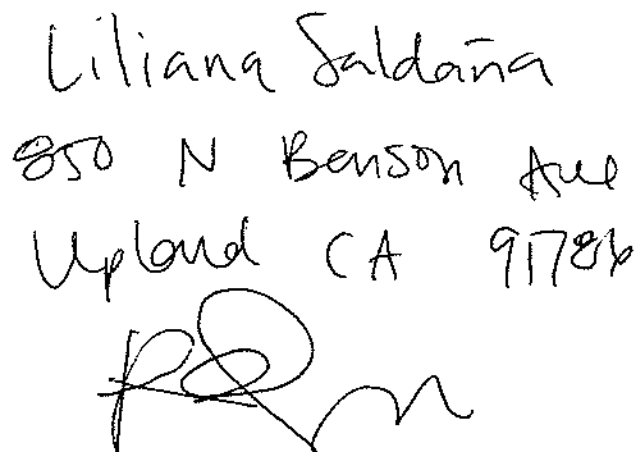 Liliana Saldaña
850 N Benson Ave
Upland CA 91786